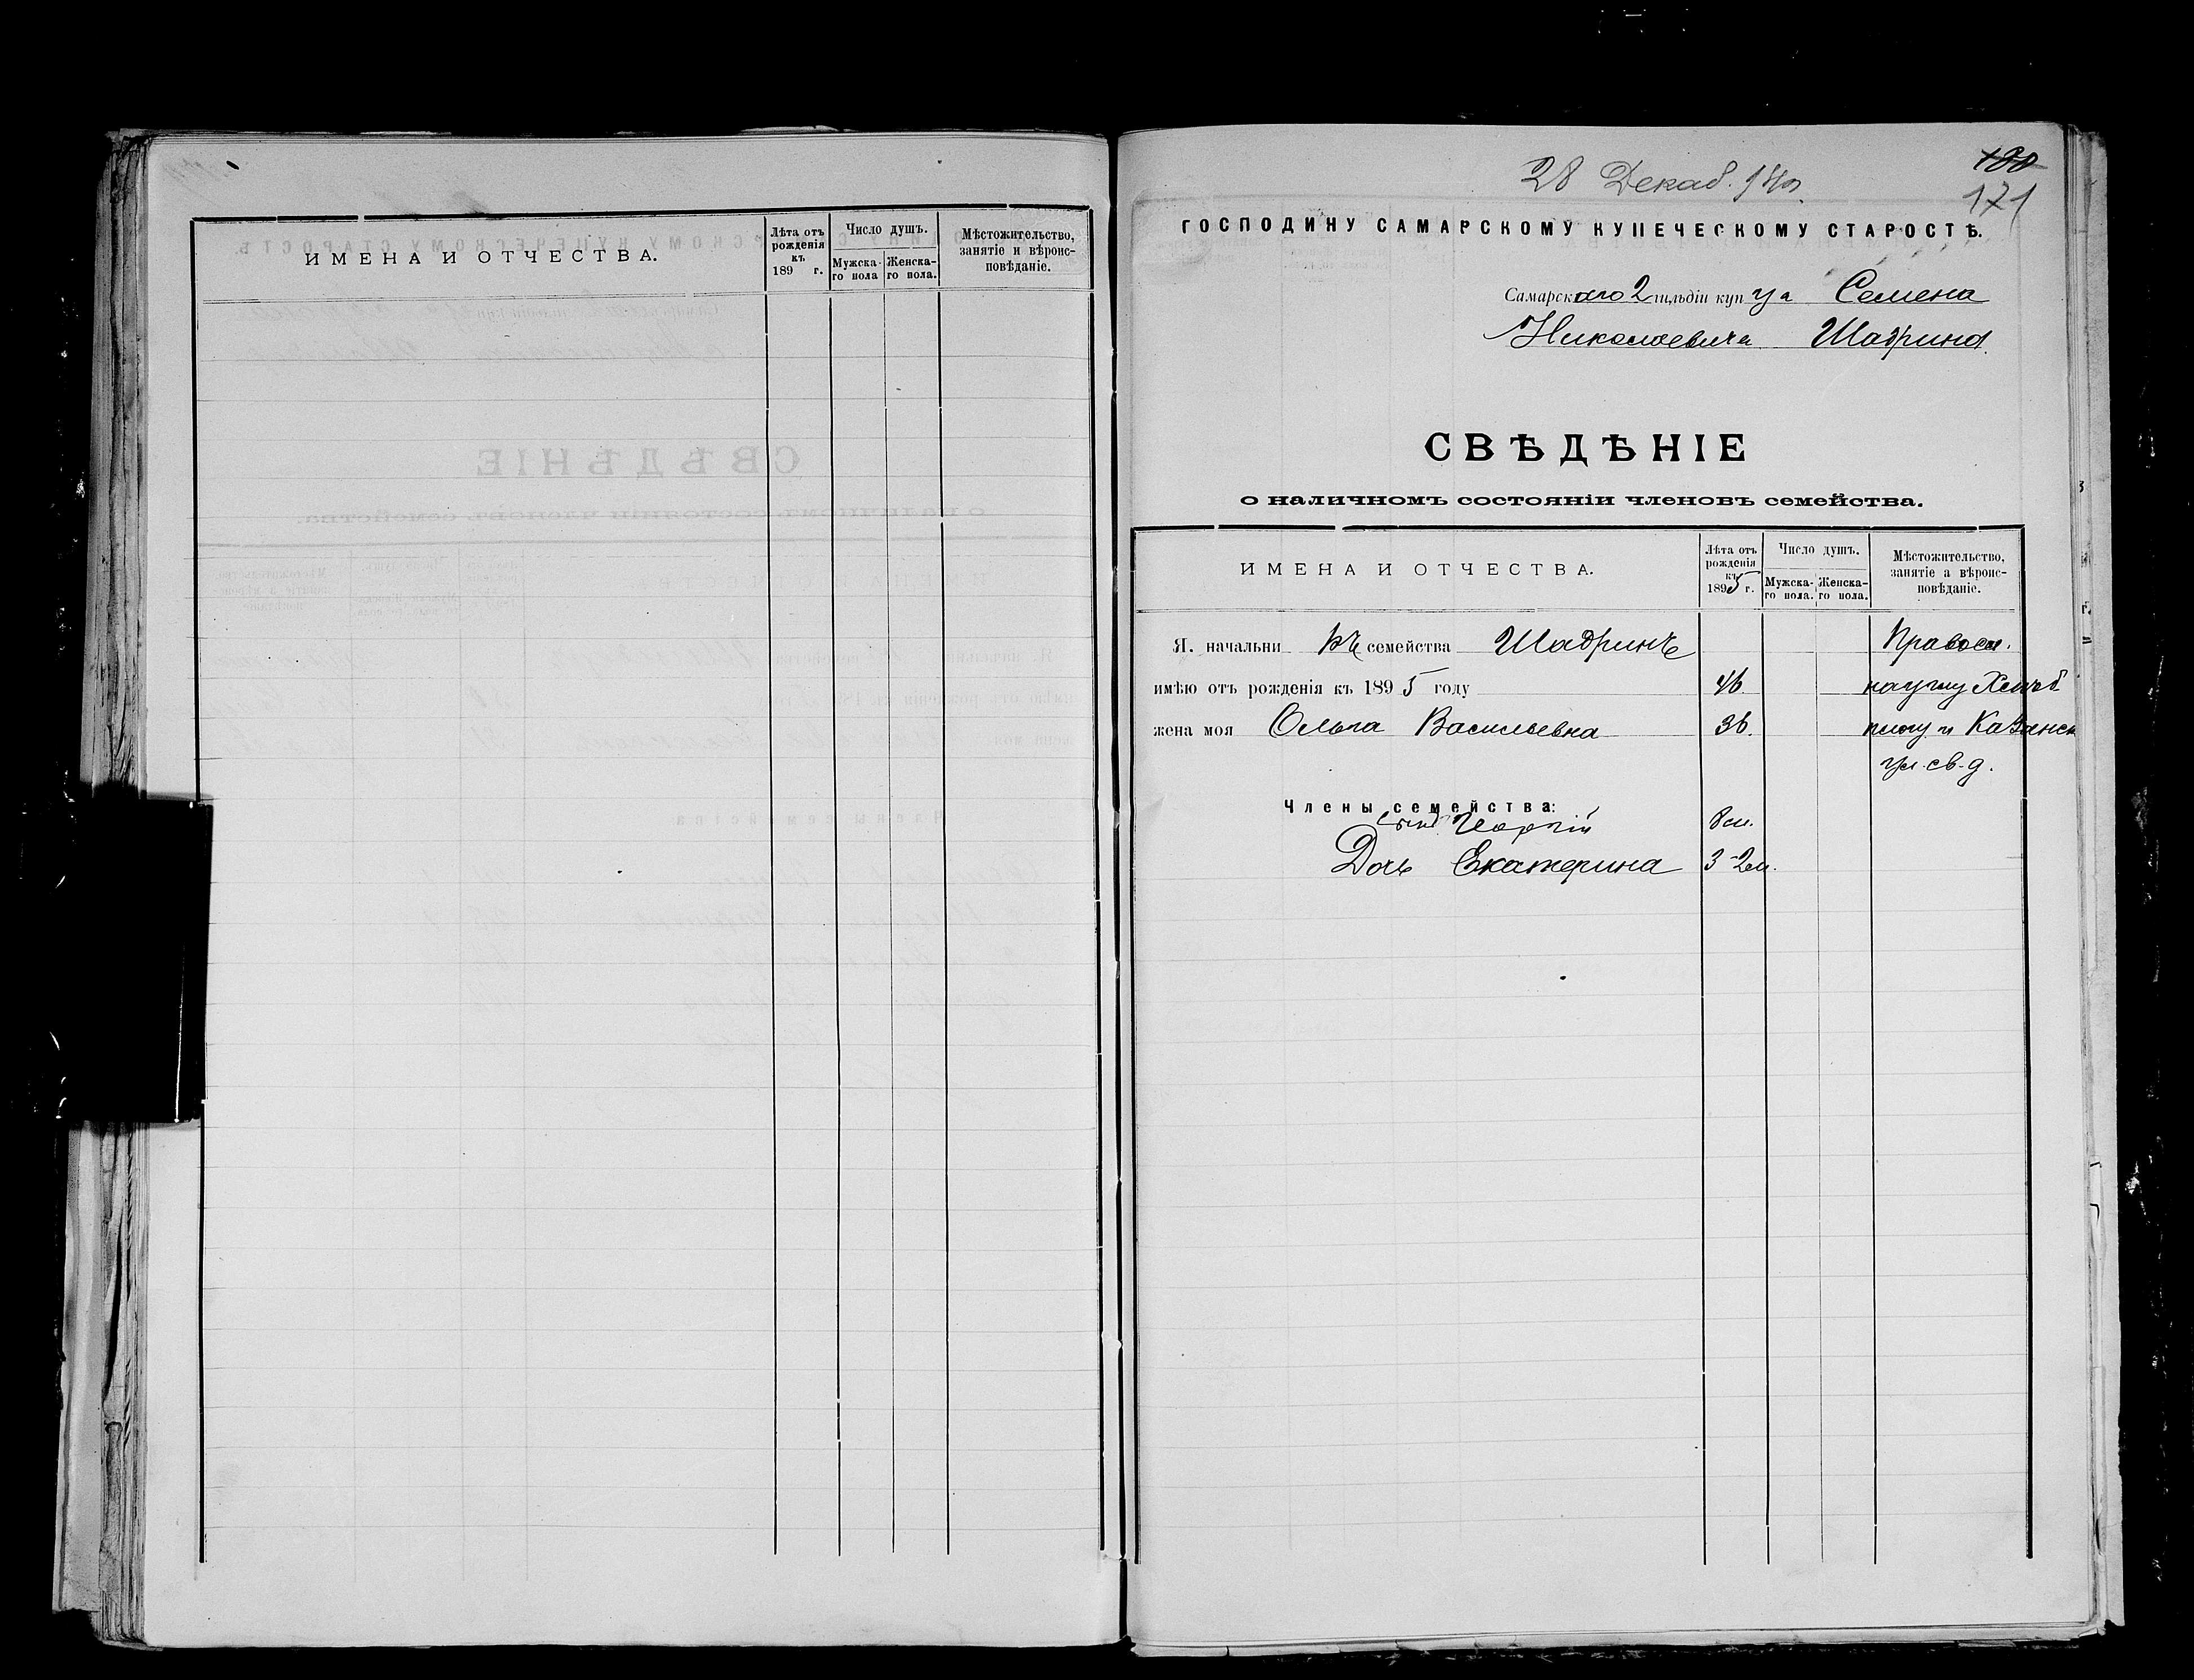 ИМЕНА И ОТЧЕСТВА.
Лѣта отъ рожденія къ 189 г.
Число душъ.
Мужска-го пола
Женска-го пола.
Мѣстожительство, занятіе и вѣроис-повѣданіе.
28 Декаб.
180
171
ГОСПОДИНУ САМАРСКОМУ КУПЕЧЕСКОМУ СТАРОСТѢ.
Самарскаго 2 гильдіи купца Семена
Николаевича Шадрина.
СВѢДѢНІЕ
о наличномъ состояніи членовъ семейства.
ИМЕНА И ОТЧЕСТВА.
Лѣта отъ рожденія къ 1895 г.
Число душъ.
Мужска-го пола.
Женска-го пола.
Мѣстожительство, занятіе а вѣроис-повѣданіе.
Я. начальникъ семейства Шадринъ Правосл.
имѣю отъ рожденія къ 1895 году 46
жена моя Ольга Васильевна 36. Казанск
ул. св. д.
Члены семейства:
Сынъ Георгій 8 м.
Дочь Екатерина 3-2 м.